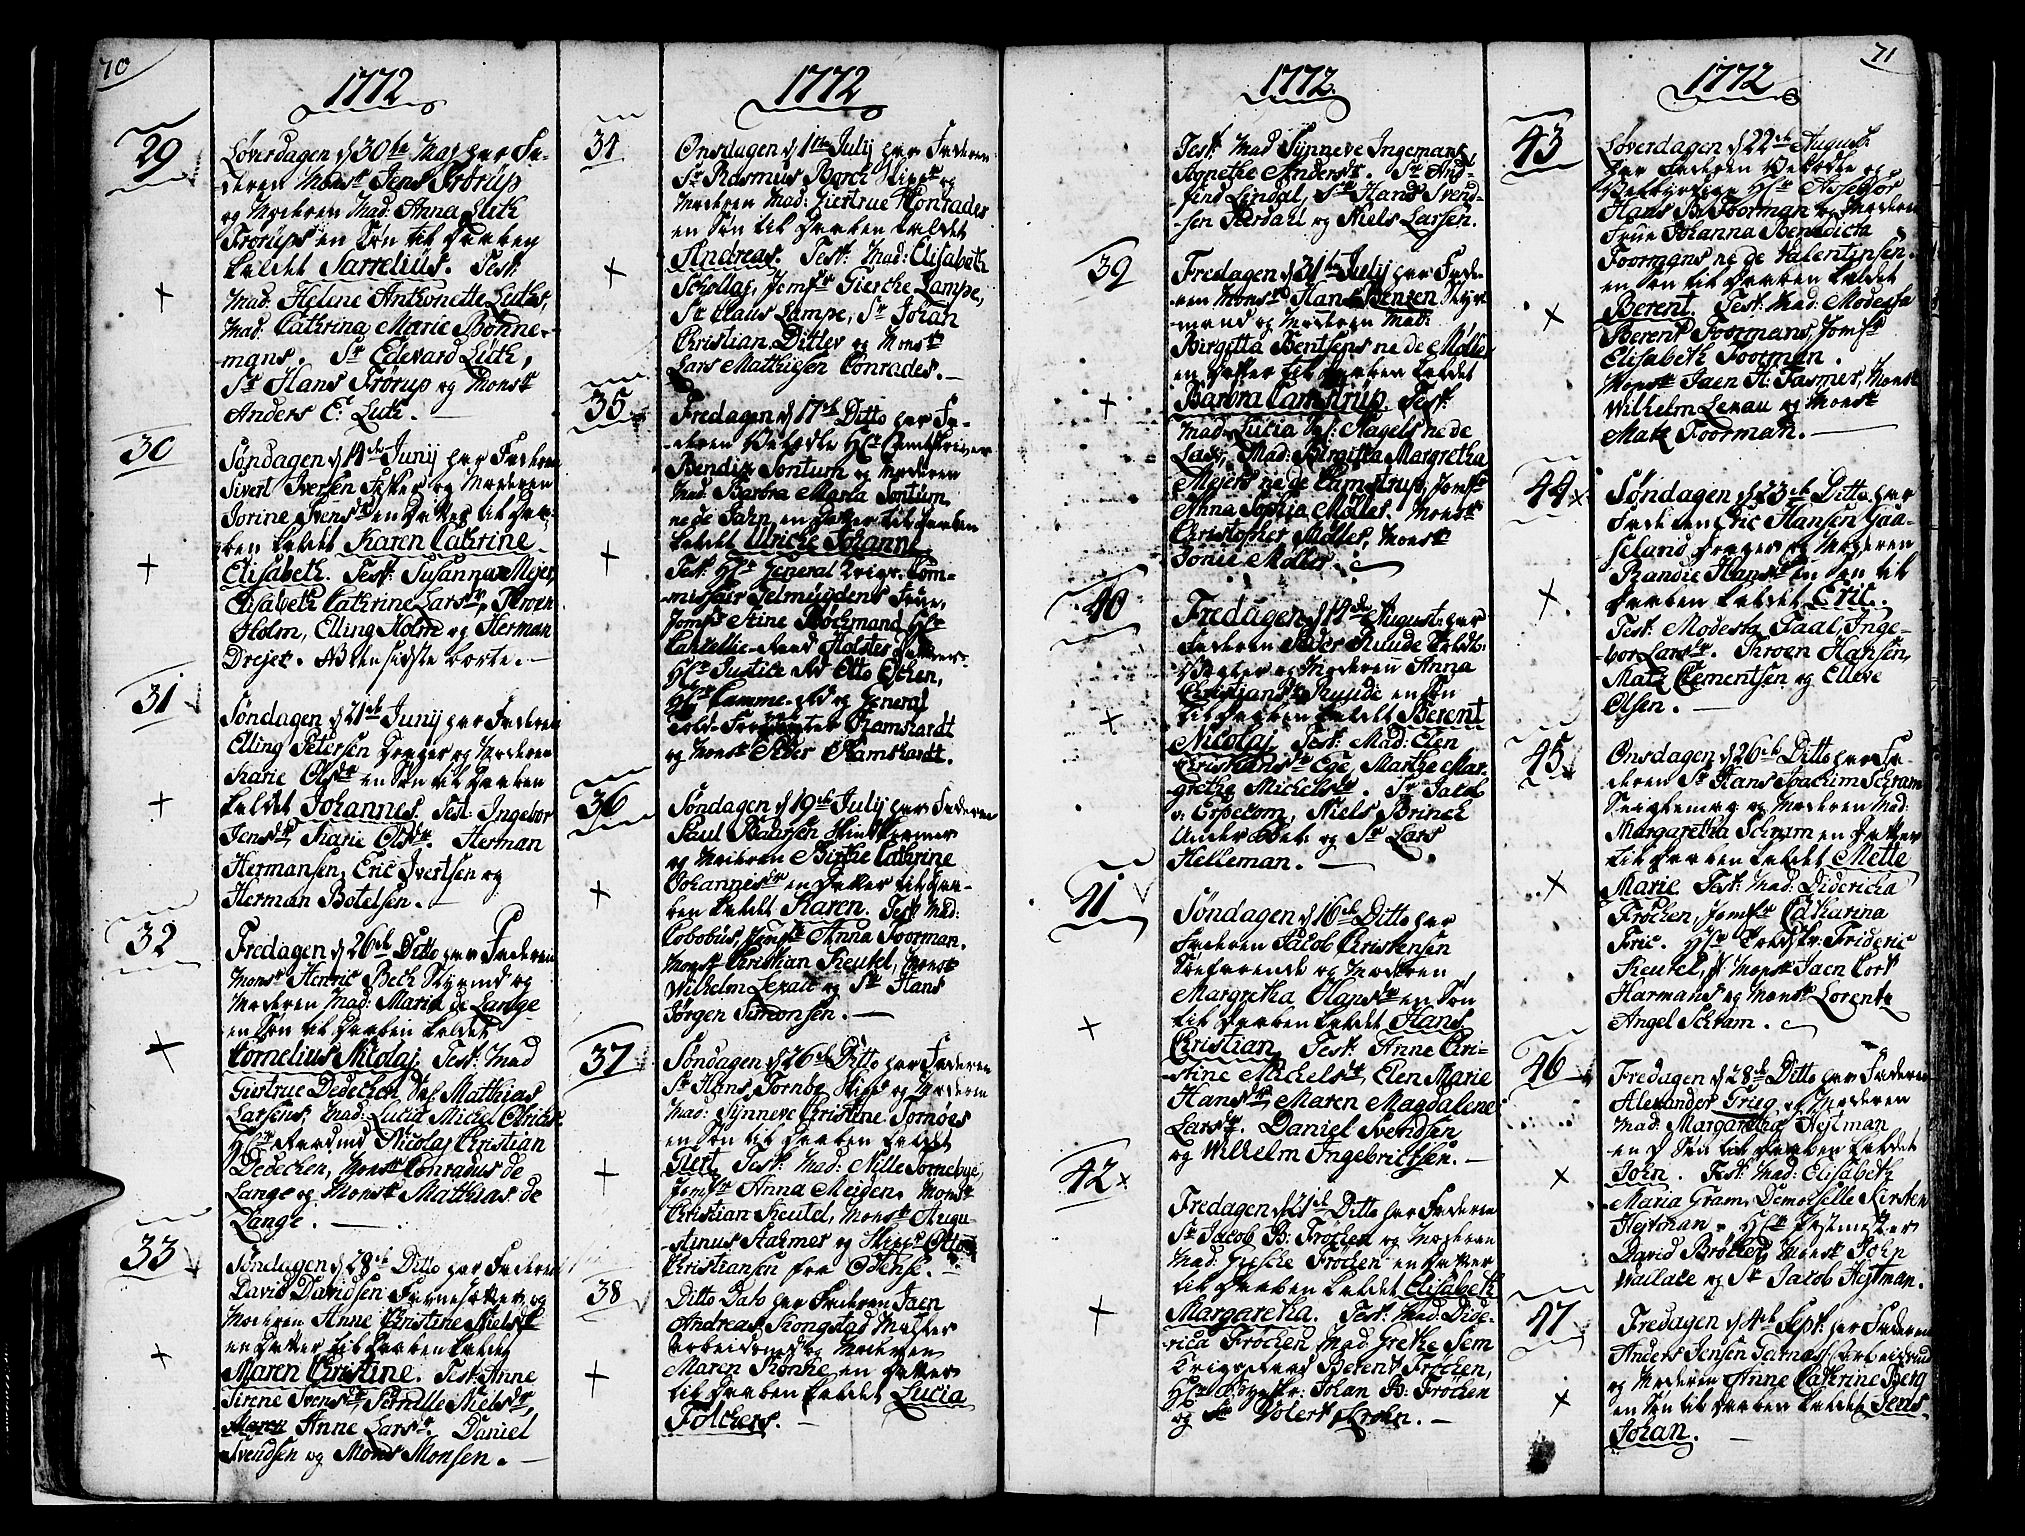 70
1772
29
Løverdagen d 30te Maj har Fa-
deren Monsr Jens Frörup
og Moderen Mad: Anna Lüth
Frörups en Søn til Daaben
kaldet Sarrelius. Test:
Mad: Helene Anthonette Lüths,
Mad: Cathrina Marie Bonne-
mans. Sr Edevard Lüth,
Sr Hans Frörup og Monsr
Anders E: Lüth.
30
Søndagen d 14de Junij har Faderen
Sivert Iversen Fisker og Moderen
Jorine Ivensdr en Datter til Daa-
ben kaldet Karen Cathrine
Elisabeth. Test: Susanna Mejer,
Elisabeth Cathrine Larsdr, Iwen
Holm, Elling Holm og Herman
Drejer. NB den sidste borte.
31
Søndagen d 21de Junij har Faderen
Elling Petersen Drager og Moderen
Karie Olsdr en Søn til Daaben
kaldet Johannes. Test: Ingebor
Jensdr, Karie Olsdr. Herman
Hermansen, Eric Ivertsen og
Herman Botelsen.
32
Fredagen d 26de Ditto har Faderen
Monsr Henric Bech Styrmd og
Moderen Mad: Maria de Lange
en Søn til Daaben kaldet
Cornelius Nicolaj. Test: Mad
Giertrue Dedechen Sal Mathias
Larsens, Mad: Lucia Michel
Hr Raadmd Nicolaj Christian
Dedechen, Monsr Conradus de
Lange og Monsr Mathias de
Lange.
33
Søndagen d 28de Ditto har Faderen
David Davidsen og
Moderen Anne Christine Nielsdr
en Datter til Daaben kaldet
Maren Christine. Test: Anne
Sirene Svensdr Pernille Nielsdr,
Maren Anne Larsdr. Daniel
Svendsen og Mons Monsen.
1772
34
Onsdagen d 1te Julij har Faderen
Sr Rasmus Borch Skippr og
Moderen Mad: Giertrue Conrades
en Søn til Daaben kaldet
Andreas. Test: Mad: Elisabeth
Schollaj, Jomfr Gierche Lampe,
Sr Claus Lampe, Sr Johan
Christian Ditlev og Monsr
Lars Mathiesen Conrades.
35
Fredagen d 17de Ditto har Fa-
deren Velædle Hr
Bendix Sontum og Moderen
Mad: Barbra Maria Sontum
ne de Jahn en Datter til Daaben
kaldet Ulriche Johanne
Test: Hr General Krigs Com-
missair Frue,
Jomfr Stine Bøchmand Hr
Cancellie-Raad Holstes
Hr Justice Rd Otto Ochen,
Hr Camme-Rd og General
Told- Ramshardt
og Monsr Peder Ramshardt.
36
Søndagen d 19de Julij har Faderen
Paul Baarsen
og Moderen Birthe Cathrine
Johannesdr en Datter til Daa-
ben kaldet Karen. Test: Mad:
Cobobus, Jomfr Anna Foorman.
Monsr Christian Keutel, Monsr
Wilhelm Lexau og Sr Hans
Jørgen Simonsen.
37
Søndagen d 26de Ditto har Faderen
Sr Hans Tornöe Skippr og Moderen
Mad: Synneve Christine Tornöes
en Søn til Daaben kaldet
Giert. Test: Mad: Nille Tornebye,
Jomfr Anna Meiden. Monsr
Christian Keutel, Monsr Augu-
stinus Stahmer og Skippr Otto
Christiansen fra Odense.
38
Ditto Dato har Faderen Jaen
Andreas Kongstad
Arbeidsmd og Moderen
Maren Rönche en Datter
til Daaben kaldet Lucia
Folchers.
1772
Test: Mad Synneve Ingemans,
Agnethe Andersdr. Sr And-
Find Lindal, Sr Hans Svend-
sen Aerdahl og Niels Larsen.
39
Fredagen d 31te Julij har Fade-
ren Monsr Hans Benzen Styr-
mand og Moderen Mad:
Birgitta Bentsens ne de Møller
en Datter til Daaben kaldet
Barbra Camstrup. Test:
Mad: Lucia Sal: Nagels ne de
Mad: Birgitta Margretha
Mejers ne de Camstrup, Jomfr
Anna Sophia Møller. Monsr
Christopher Møller, Monsr
Jonie Møller.
40
Fredagen d 14de August: har
Faderen Peder Ruude
Vægter og Moderen Anna
Christiansdr Ruude en Søn
til Daaben kaldet Berent
Nicolaj. Test: Mad: Elen
Christiansdr Ege, Marthe Mar-
grethe Michelsdr. Sr Jacob
v. Erpecom, Niels Brinch
Under og Sr Lars
Helleman.
41
Søndagen d 16de Ditto har
Faderen Jacob Christensen
Söefarende og Moderen
Margretha Hansdr en Søn
til Daaben kaldet Hans
Christian. Test: Anne Chri-
stine Michelsdr, Elen Marie
Hansdr, Maren Magdalene
Larsdr. Daniel Svendsen
og Wilhelm Ingebrictsen.
42
Fredagen d 21de Ditto har Faderen
Sr Jacob B: Fröchen og Moderen
Mad: Giesche Fröchen en Datter
til Daaben kaldet Elisabeth
Margaretha. Test: Mad: Dide-
rica Fröchen, Mad Grethe Sem
Krigsraad Berent Fröchen,
Hr Byeskr: Johan B: Fröchen
og Sr Volert Krohn.
71
1772
43
Løverdagen d 22de August:
har Faderen Velædle og
Velbyrdige Hr Assessor
Hans B: Foorman og Moderen
Frue Johanna Benedicta
Foormans ne de Valentinsen
en Søn til Daaben kaldet
Berent. Test: Mad: Modesta
Berent Foormans, Jomfr
Elisabeth Foorman.
Monsr Jaen H: Fasmer, Monsr
Wilhelm Lexau og Monsr
Matz Foorman.
44
Søndagen d 23de Ditto har
Faderen Eric Hansen Gaa-
seland Drager og Moderen
Randie Hansdr en Søn til
Daaben kaldet Eric.
Test: Modesta Taal, Inge-
bor Larsdr. Thröen Hansen,
Matz Clementsen og Elleve
Olsen.
45
Onsdagen d 26de Ditto har Fa-
deren Sr Hans Joachim Schram
og Moderen Mad:
Margaretha Schram en Datter
til Daaben kaldet Mette
Marie Test: Mad: Didericha
Fröchen, Jomfr Catharina
Foric. Hr Frideric
Keutel, Monsr Jaen Cort
Harmans og Monsr Lorentz
Angel Schram.
46
Fredagen d 28de Ditto har Faderen
Alexander Grieg og Moderen
Mad: Margaretha Heitman
en Søn til Daaben kaldet
John. Test: Mad: Elisabeth
Maria Gram, Demoiselle Kirsten
Heitman. Hr Postmester
David Bröcher, Monsr John
Wallace og Sr Jacob Heitman.
47
Fredagen d 4de Sept: har Faderen
Anders Jensen Garnaas Arbeidsmd
og Moderen Anne Cathrine Berg
en Søn til Daaben kaldet Jens
Johan.